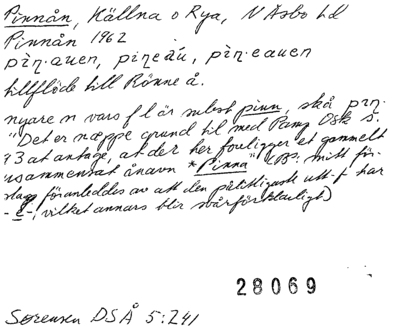 Pinnån, Källna o Rya, N Åsbo hd
Pinnån 1962
pìn·auen, pineáu, pìn·eauen
tillflöde till Rönne å.
nyare n vars f l är subst pinn, skå pìn·
"Det er næppe grund til med Pamp Osk s.
43 at antage, at der her foreligger et gammelt
usammensat ånavn *Pinna" (B: mitt för-
slag föranleddes av att den pålitligaste utt-f har
-e-, vilket annars blir svårförklarligt)
28069
Sørensen DSÅ 5:241